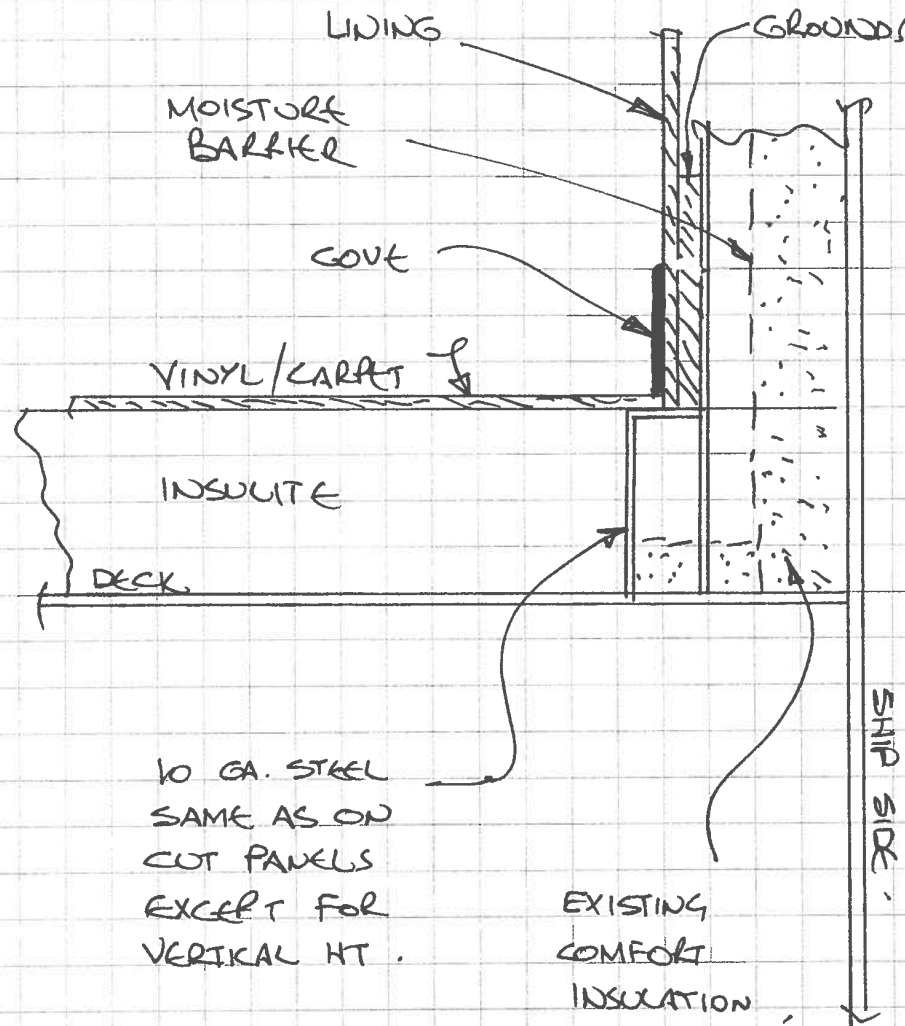 LINING
GROUNDS
MOISTURE
BARRIER
COVE
VINYL/CARPET
INSULITE
DECK
SHIP SIDE.
10 GA. STEEL
SAME AS ON
CUT PANELS
EXCEPT FOR
VERTICAL HT.
EXISTING
COMFORT
INSULATION